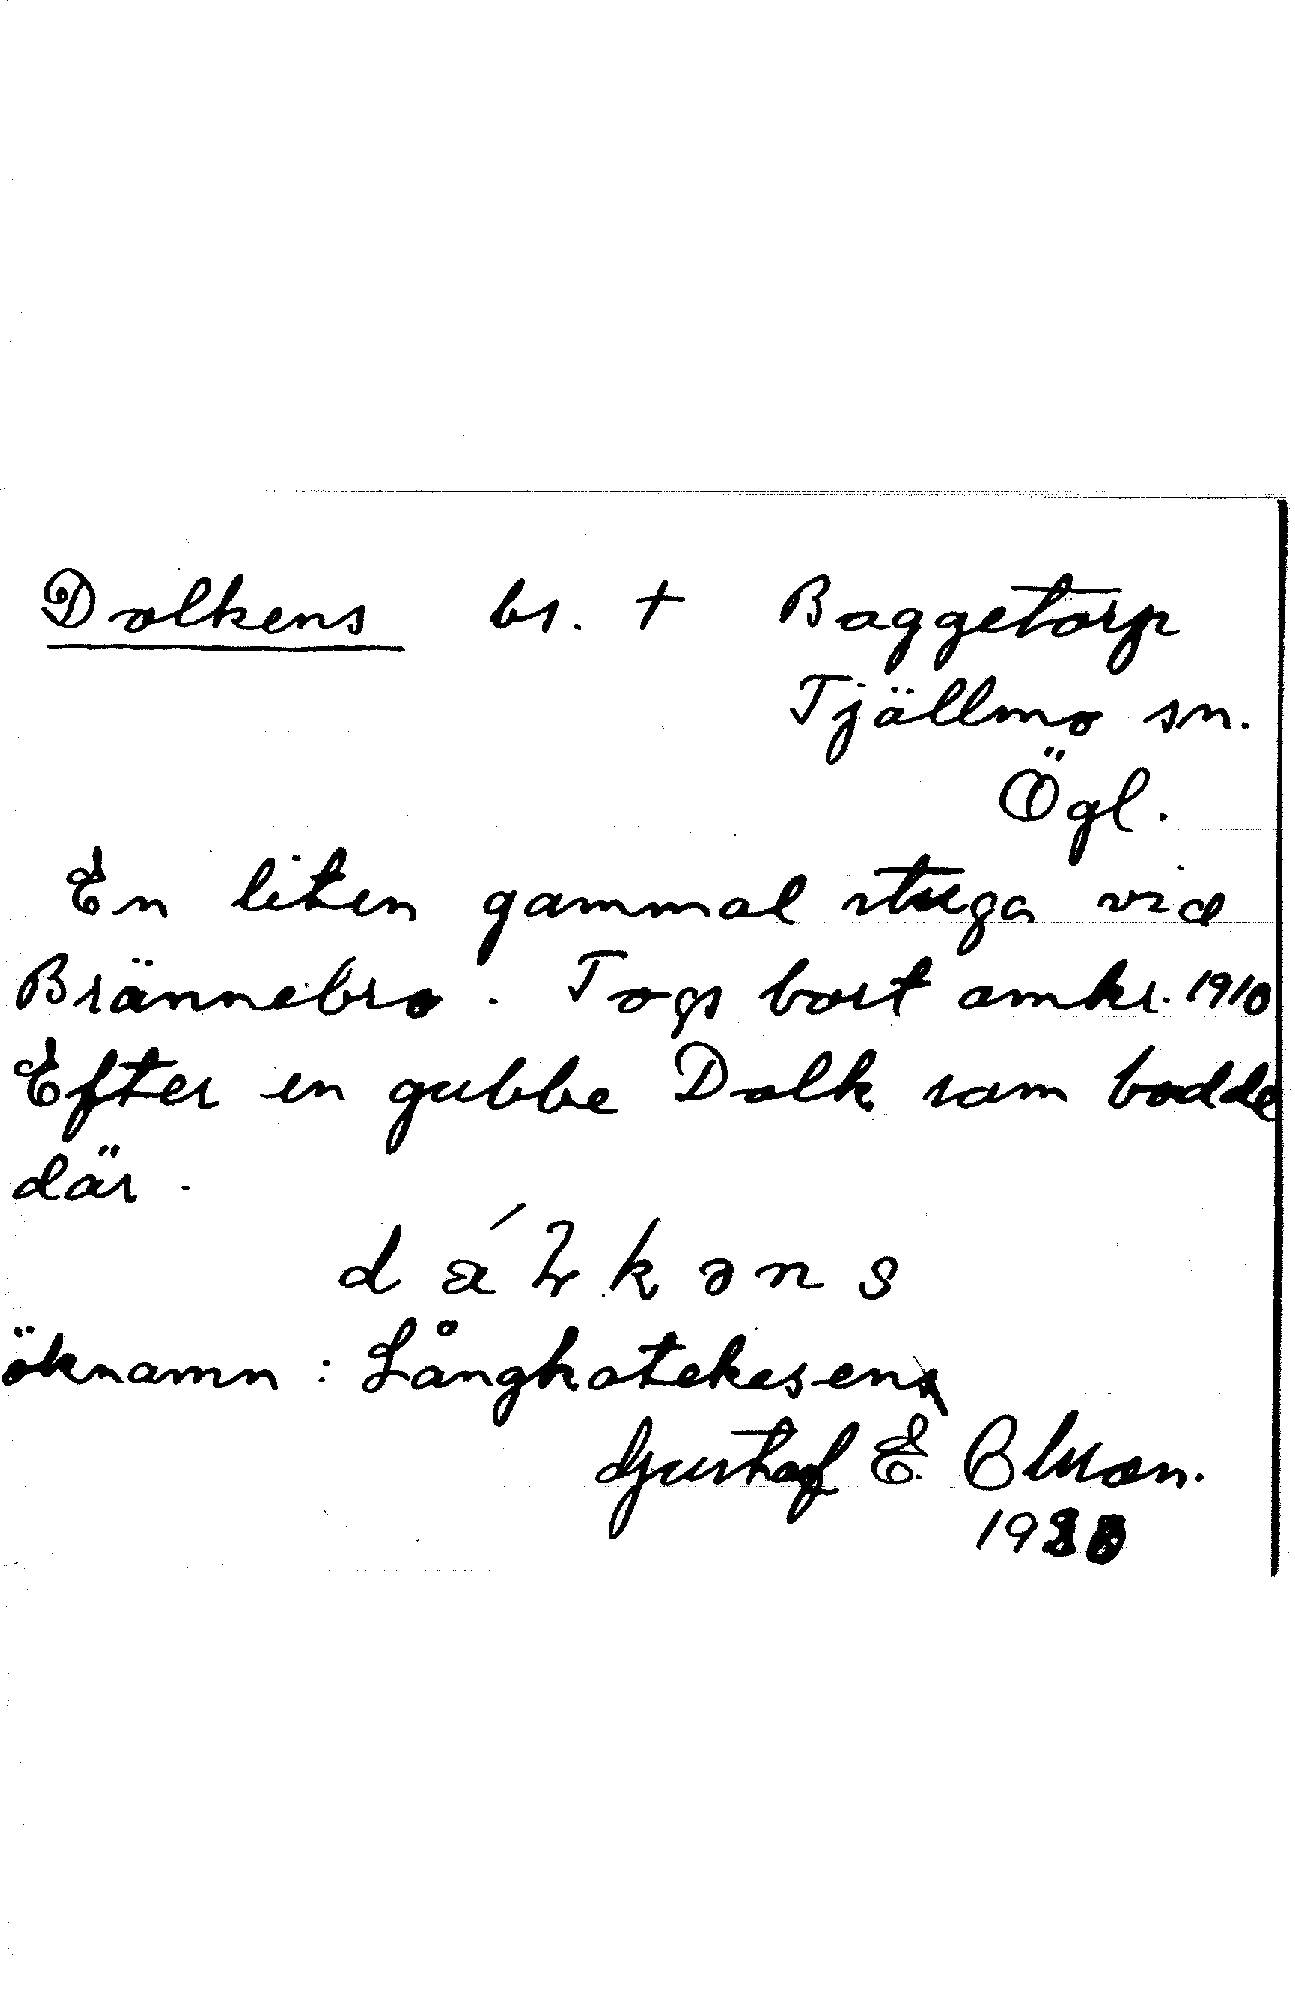 Dolkens bs. † Baggetorp
Tjällmo sn.
Ögl.
En liten gammal stuga vid
Brännebro. Togs bort omkr. 1910
Efter en gubbe Dolk som bodde
där.
öknamn: Långkatekesens
Gustaf E. Olsson.